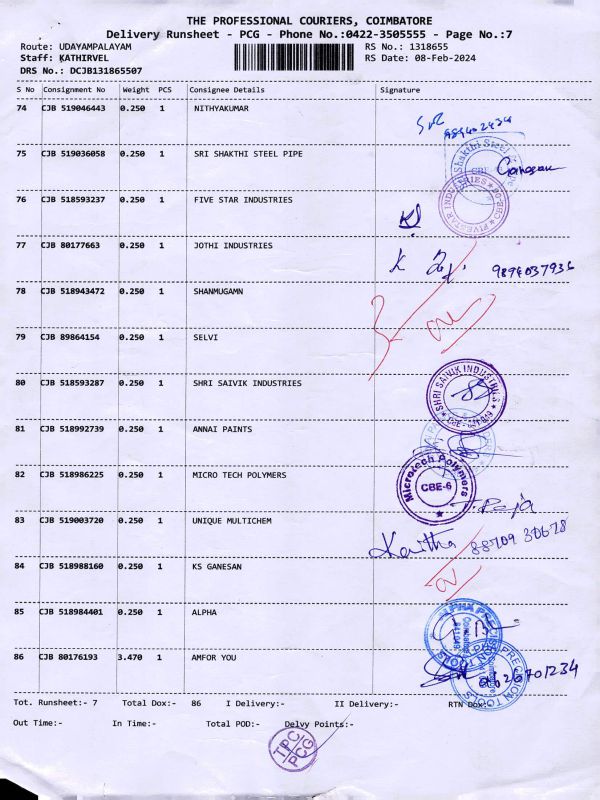 THE PROFESSIONAL COURIERS, COIMBATORE
Delivery Runsheet - PCG - Phone No.:0422-3505555 - Page No.:7
Route: UDAYAMPALAYAM RS No.: 1318655
Staff: KATHIRVEL RS Date: 08-Feb-2024
DRS No.: DCJB131865507
S No Consignment No Weight PCS Consignee Details Signature
74 CJB 519046443 0.250 1 NITHYAKUMAR
75 CJB 519036058 0.250 1 SRI SHAKTHI STEEL PIPE
Shakthi Steel
CBE
76 CJB 518593237 0.250 1 FIVE STAR INDUSTRIES
FIVESTAR INDUSTRIES
77 CJB 80177663 0.250 1 JOTHI INDUSTRIES
9894037936
78 CJB 518943472 0.250 1 SHANMUGAMN
79 CJB 89864154 0.250 1 SELVI
80 CJB 518593287 0.250 1 SHRI SAIVIK INDUSTRIES
SHRI SAIVIK INDUSTRIES
81 CJB 518992739 0.250 1 ANNAI PAINTS
82 CJB 518986225 0.250 1 MICRO TECH POLYMERS
Microtech Polymers
CBE-6
T. Raja
83 CJB 519003720 0.250 1 UNIQUE MULTICHEM
Kavitha 88709 30678
84 CJB 518988160 0.250 1 KS GANESAN
85 CJB 518984401 0.250 1 ALPHA
ALPHA PRECISION TOOLS
86 CJB 80176193 3.470 1 AMFOR YOU
PRECISION TOOLS
Tot. Runsheet:- 7 Total Dox:- 86 I Delivery:- II Delivery:- RTN Dox:-
Out Time:- In Time:- Total POD:- Delvy Points:-
TPC
PCG